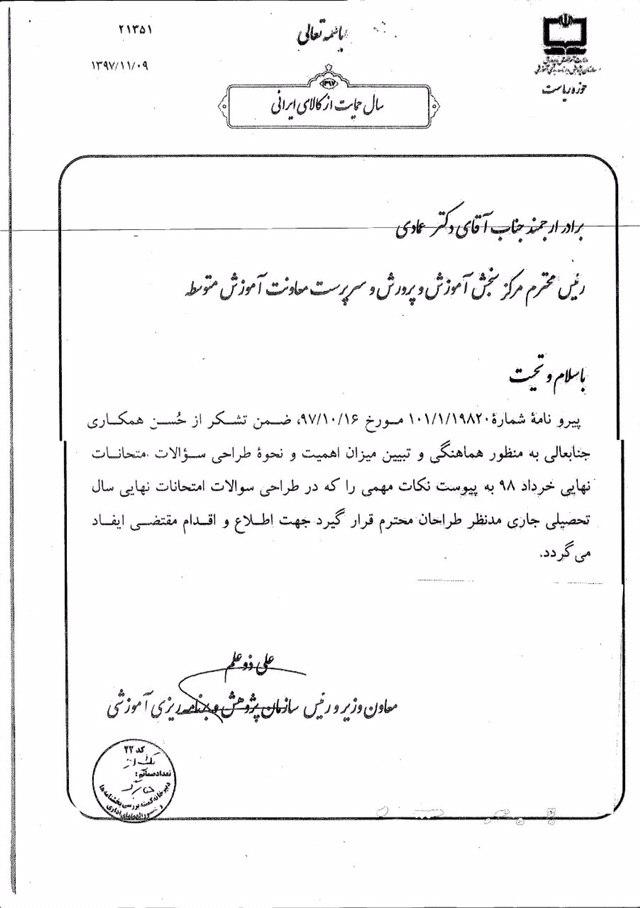 باسمه تعالی
۲۱۳۵۱
۱۳۹۷/۱۱/۰۹
وزارت آموزش و پرورش
سازمان پژوهش و برنامه ریزی آموزشی
حوزه ریاست
۱۳۹۷
سال حمایت از کالای ایرانی
برادر ارجمند جناب آقای دکتر عمادی
رئیس محترم مرکز سنجش آموزش و پرورش و سرپرست معاونت آموزش متوسطه
با سلام و تحیت
پیرو نامهٔ شمارهٔ ۱۰۱/۱/۱۹۸۲۰ مورخ ۹۷/۱۰/۱۶، ضمن تشکر از حُسن همکاری
جنابعالی به منظور هماهنگی و تبیین میزان اهمیت و نحوهٔ طراحی سؤالات امتحانات
نهایی خرداد ۹۸ به پیوست نکات مهمی را که در طراحی سوالات امتحانات نهایی سال
تحصیلی جاری مدنظر طراحان محترم قرار گیرد جهت اطلاع و اقدام مقتضی ایفاد
می‌گردد.
علی ذوعلم
معاون وزیر و رئیس سازمان پژوهش و برنامه ریزی آموزشی
کد ۲۲
تعداد صفحات: